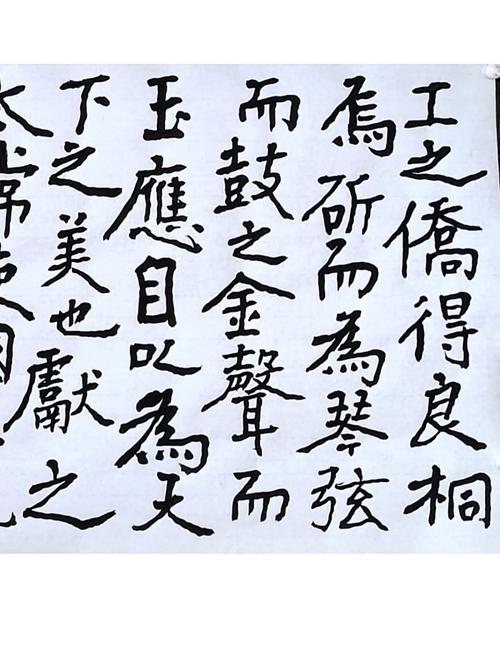 工之僑得良桐
焉斫而為琴弦
而鼓之金聲而
玉應自以為天
下之美也獻之
太常使國